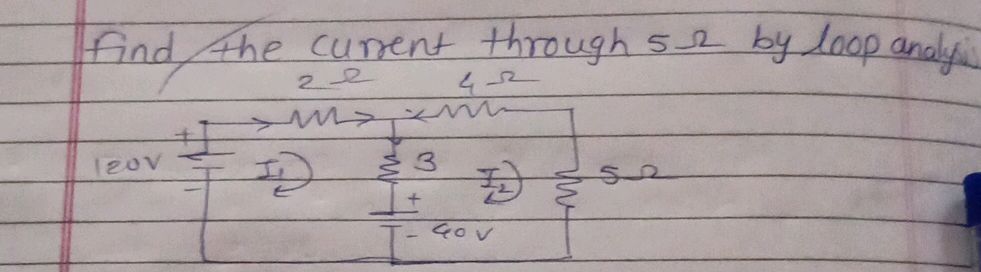 find the current through 5Ω by loop analy
2Ω 4Ω
+
120V I1 3 I2 5Ω
- +
- 40V